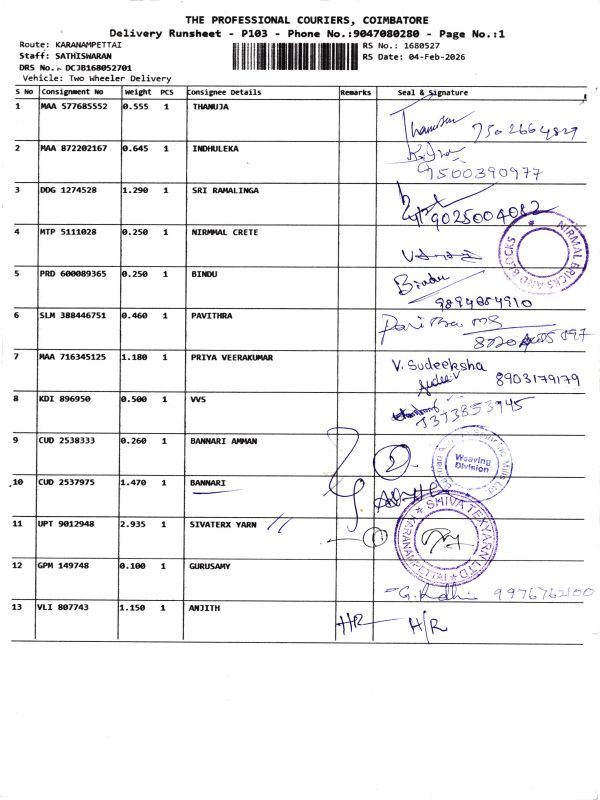 THE PROFESSIONAL COURIERS, COIMBATORE
Delivery Runsheet - P103 - Phone No.:9047080280 - Page No.:1
Route: KARANAMPETTAI RS No.: 1680527
Staff: SATHISWARAN RS Date: 04-Feb-2026
DRS No.: DCJB168052701
Vehicle: Two Wheeler Delivery
S No Consignment No Weight PCS Consignee Details Remarks Seal & Signature
1 MAA 577685552 0.555 1 THANUJA
7502664829
2 MAA 872202167 0.645 1 INDHULEKA
9500390977
3 DDG 1274528 1.290 1 SRI RAMALINGA
9025004082
4 MTP 5111028 0.250 1 NIRMMAL CRETE
NIRMAL BRICKS AND BLOCKS
5 PRD 600089365 0.250 1 BINDU Bindu
9894884910
6 SLM 388446751 0.460 1 PAVITHRA
7 MAA 716345125 1.180 1 PRIYA VEERAKUMAR V. Sudeeksha
8903179179
8 KDI 896950 0.500 1 VVS
7373853945
9 CUD 2538333 0.260 1 BANNARI AMMAN 2
Weaving Division
10 CUD 2537975 1.470 1 BANNARI
11 UPT 9012948 2.935 1 SIVATERX YARN 1
SHIVA TEXYARN LTD KARANAMPETTAI
12 GPM 149748 0.100 1 GURUSAMY
9976762100
13 VLI 807743 1.150 1 ANJITH HR H/R